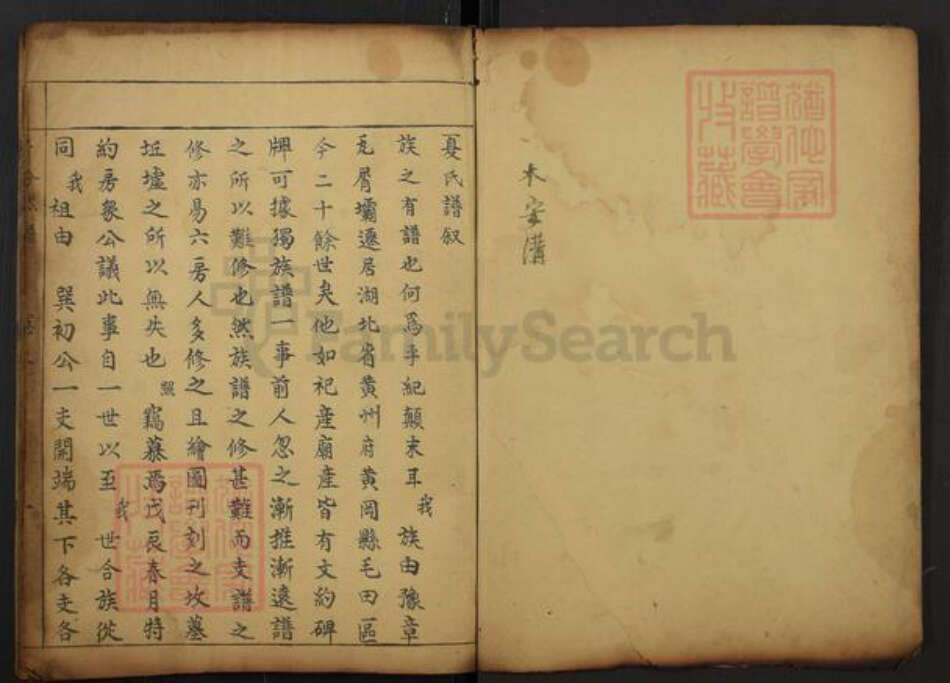 木安溝
猶他家譜學會收藏
夏氏譜叙
族之有譜也何爲乎紀顛末耳我族由豫章
瓦屑壩遷居湖北省黄州府黄岡縣毛田區
今二十餘世矣他如祀産廟産皆有文約碑
牌可據獨族譜一事前人忽之漸推漸遠譜
之所以難修也然族譜之修甚難而支譜之
修亦易六房人多修之且繪圖刊刻之坟墓
坵墟之所以無失也竊慕焉戊辰春月特
約房衆公議此事自一世以至我世合族從
同我祖由巽初公一支開端其下各支各
FamilySearch